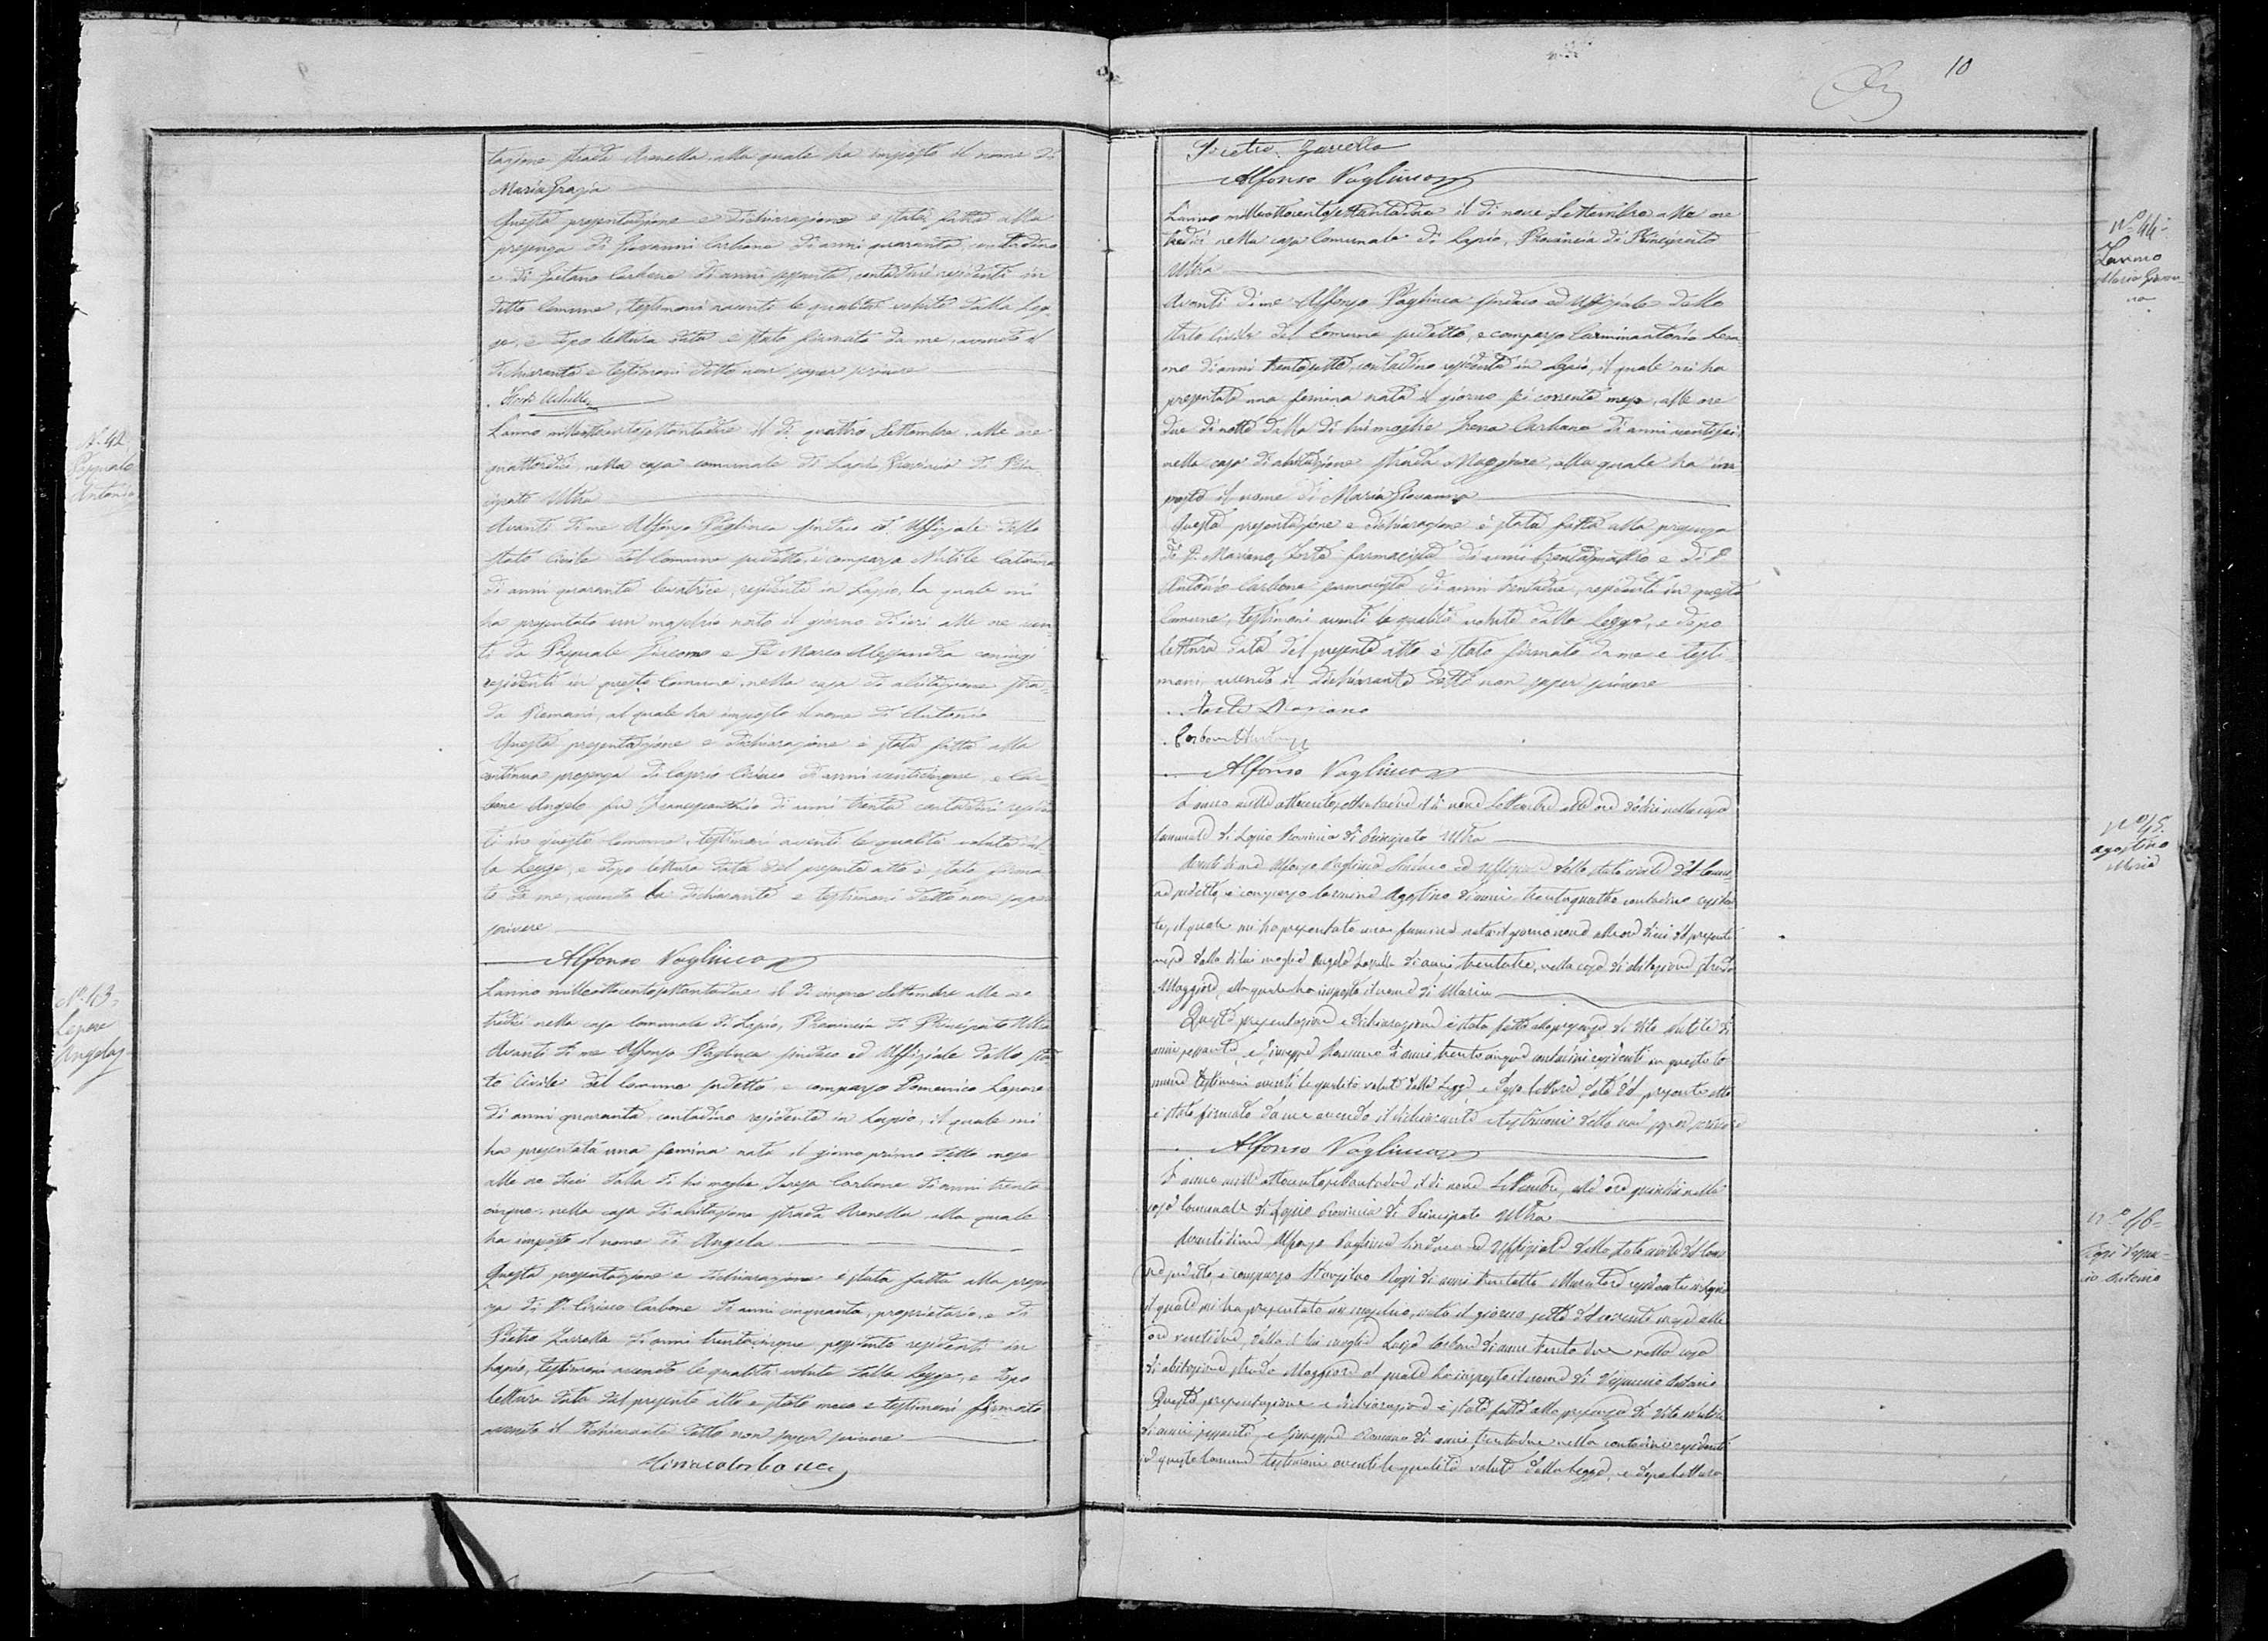 10
tazione strada Arenella, alla quale ha imposto il nome di
Maria Grazia
Questa presentazione e dichiarazione è stata fatta alla
presenza di Giovanni Carbone di anni quaranta, contadino
e di Gaetano Carbone di anni sessanta, contadini residenti in
detto Comune, testimoni aventi le qualità volute dalla Leg-
ge, e dopo lettura data è stato firmato da me, avendo il
dichiarante e testimoni detto non saper scrivere
N. 42
Pasquale
Antonio
L'anno milleottocentosettantadue il dì quattro Settembre alle ore
quattordici nella casa comunale di Lapio, Provincia di Prin-
cipato Ultra
Avanti di me Alfonso Vaglieca Sindaco ed Uffiziale dello
Stato Civile del Comune sudetto, è comparsa Nutile Caterina
di anni quaranta levatrice, residente in Lapio, la quale mi
ha presentato un maschio nato il giorno di ieri alle ore ven-
ti da Pasquale Giacomo e De Marco Alessandra coniugi
residenti in questo Comune, nella casa di abitazione stra-
da Romani, al quale ha imposto il nome di Antonio
Questa presentazione e dichiarazione è stata fatta alla
continua presenza di Caprio Ciriaco di anni venticinque, e Car-
bone Angelo fu di anni trenta contadini residen
ti in questo Comune, testimoni aventi le qualità volute dal-
la Legge, e dopo lettura data del presente atto è stato firma-
to da me, avendo la dichiarante e testimoni detto non saper
scrivere
Alfonso Vaglieca
N. 43
Lepore
Angela
L'anno milleottocentosettantadue il dì cinque Settembre alle ore
tredici nella casa Comunale di Lapio, Provincia di Principato Ultra
Avanti di me Alfonso Vaglieca Sindaco ed Uffiziale dello Sta-
to Civile del Comune sudetto, è comparso Domenico Lepore
di anni quaranta contadino residente in Lapio, il quale mi
ha presentata una femina nata il giorno primo detto mese
alle ore dieci dalla di lui moglie Teresa Carbone di anni trenta
cinque nella casa di abitazione strada Arenella alla quale
ha imposto il nome di Angela
Questa presentazione e dichiarazione è stata fatta alla presen
za di D. Ciriaco Carbone di anni cinquanta, proprietario, e di
Pietro Zarrella di anni trentacinque possidente residenti in
Lapio, testimoni avendo le qualità volute dalla Legge, e dopo
lettura data del presente atto è stato meco e testimoni firmato
avendo il dichiarante detto non saper scrivere
Ciriaco Carbone
Pietro Zarrella
Alfonso Vaglieca
N.° 44
Maria Giovan-
na
L'anno milleottocentosettantadue il dì nove Settembre alle ore
tredici nella casa Comunale di Lapio, Provincia di Principato
Ultra
Avanti di me Alfonso Vaglieca Sindaco ed Uffiziale dello
Stato Civile del Comune sudetto, è comparso Carminantonio
di anni trentasette, contadino residente in Lapio, il quale mi ha
presentato una femina nata il giorno sei corrente mese, alle ore
due di notte dalla di lui moglie Irena Carbone di anni ventisei
nella casa di abitazione strada Maggiore, alla quale ha im
posto il nome di Maria Giovanna
Questa presentazione e dichiarazione è stata fatta alla presenza
di D. Mariano Forte farmacista di anni trentaquattro e di D.
Antonio Carbone farmacista di anni trentadue, residenti in questo
Comune, testimoni aventi le qualità volute dalla Legge, e dopo
lettura data del presente atto è stato firmato da me e testi-
moni, avendo il dichiarante detto non saper scrivere
Forte Mariano
Carbone Antonio
Alfonso Vaglieca
N.° 45
Agostino
Maria
L'anno milleottocentosettantadue il dì nove Settembre alle ore dodici nella casa
Comunale di Lapio Provincia di Principato Ultra
Avanti di me Alfonso Vaglieca Sindaco ed Uffiziale dello Stato Civile del Comu-
ne sudetto, è comparso Carmine Agostino di anni trentaquattro contadino residen
te, il quale mi ha presentato una femina nata il giorno nove alle ore dieci del presente
mese dalla di lui moglie Angela di anni trentatre, nella casa di abitazione strada
Maggiore, alla quale ha imposto il nome di Maria
Questa presentazione e dichiarazione è stata fatta alla presenza di Vito Nutile di
anni sessanta, e Giuseppe Romano di anni trentacinque contadini residenti in questo Co
mune testimoni aventi le qualità volute dalla Legge, e dopo lettura data del presente atto
è stato firmato da me avendo il dichiarante e testimoni detto non saper scrivere
Alfonso Vaglieca
N.° 46
L'anno milleottocentosettantadue il dì nove Settembre, alle ore quindici nella
casa Comunale di Lapio Provincia di Principato Ultra
Avanti di me Alfonso Vaglieca Sindaco ed Uffiziale dello Stato Civile del Comu
ne sudetto, è comparso di anni trentotto Muratore residente in Lapio
il quale mi ha presentato un maschio, nato il giorno sette del corrente mese alle
ore ventidue, dalla di lui moglie Luisa Carbone di anni trentadue nella casa
di abitazione strada Maggiore al quale ha imposto il nome di Antonio
Questa presentazione e dichiarazione è stata fatta alla presenza di Vito Nutile
di anni sessanta e Giuseppe Romano di anni trentadue contadini residenti
in questo Comune testimoni aventi le qualità volute dalla Legge, e dopo lettura